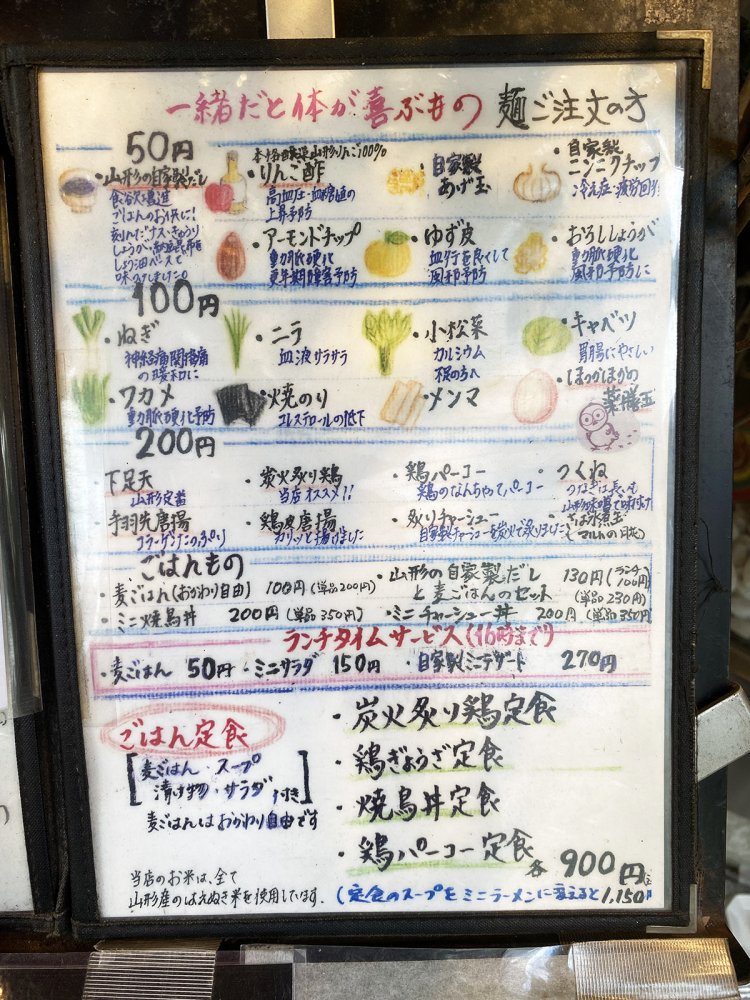 一緒だと体が喜ぶもの 麺ご注文の方
50円
・山形の自家製だし
ごはんのお供に!
刻んだナス・きゅうり
しょうが・納豆昆布を
しょう油ベースで
本格醸造山形りんご100%
・りんご酢
高血圧・血糖値の
上昇予防
・自家製
あげ玉
・自家製
ニンニクチップ
冷え症・疲労回復
・アーモンドチップ
動脈硬化
更年期障害予防
・ゆず皮
血行を良くして
風邪予防
・おろししょうが
動脈硬化
風邪予防に
100円
・ねぎ
神経痛関節痛
の緩和に
・ニラ
血液サラサラ
・小松菜
カルシウム
不足の方へ
・キャベツ
胃腸にやさしい
・ワカメ
動脈硬化予防
・焼のり
コレステロールの低下
・メンマ
・ほっかほかの
薬膳玉
200円
・下足天
山形定番
・炭火炙り鶏
当店オススメ!!
・鶏パーコー
鶏のなんちゃってパーコー
・つくね
つなぎは長いも
山形味噌で味付け
・手羽先唐揚
コラーゲンたっぷり
・鶏皮唐揚
カリッと揚げました
・炙りチャーシュー
自家製チャーシューを炭火で炙りました
ごはんもの
・麦ごはん(おかわり自由) 100円(単品200円)
・ミニ焼鳥丼 200円(単品350円)
・山形の自家製だし 130円(ランチ100円)
と麦ごはんのセット (単品230円)
・ミニチャーシュー丼 200円(単品350円)
ランチタイムサービス(16時まで)
・麦ごはん 50円・ミニサラダ 150円 ・自家製ミニデザート 270円
ごはん定食
[麦ごはん・スープ
漬け物・サラダ 付き]
麦ごはんはおかわり自由です
・炭火炙り鶏定食
・鶏ぎょうざ定食
・焼鳥丼定食
・鶏パーコー定食
各900円
(定食のスープをミニラーメンに変えると1,150円
当店のお米は、全て
山形産のはえぬき米を使用しています。